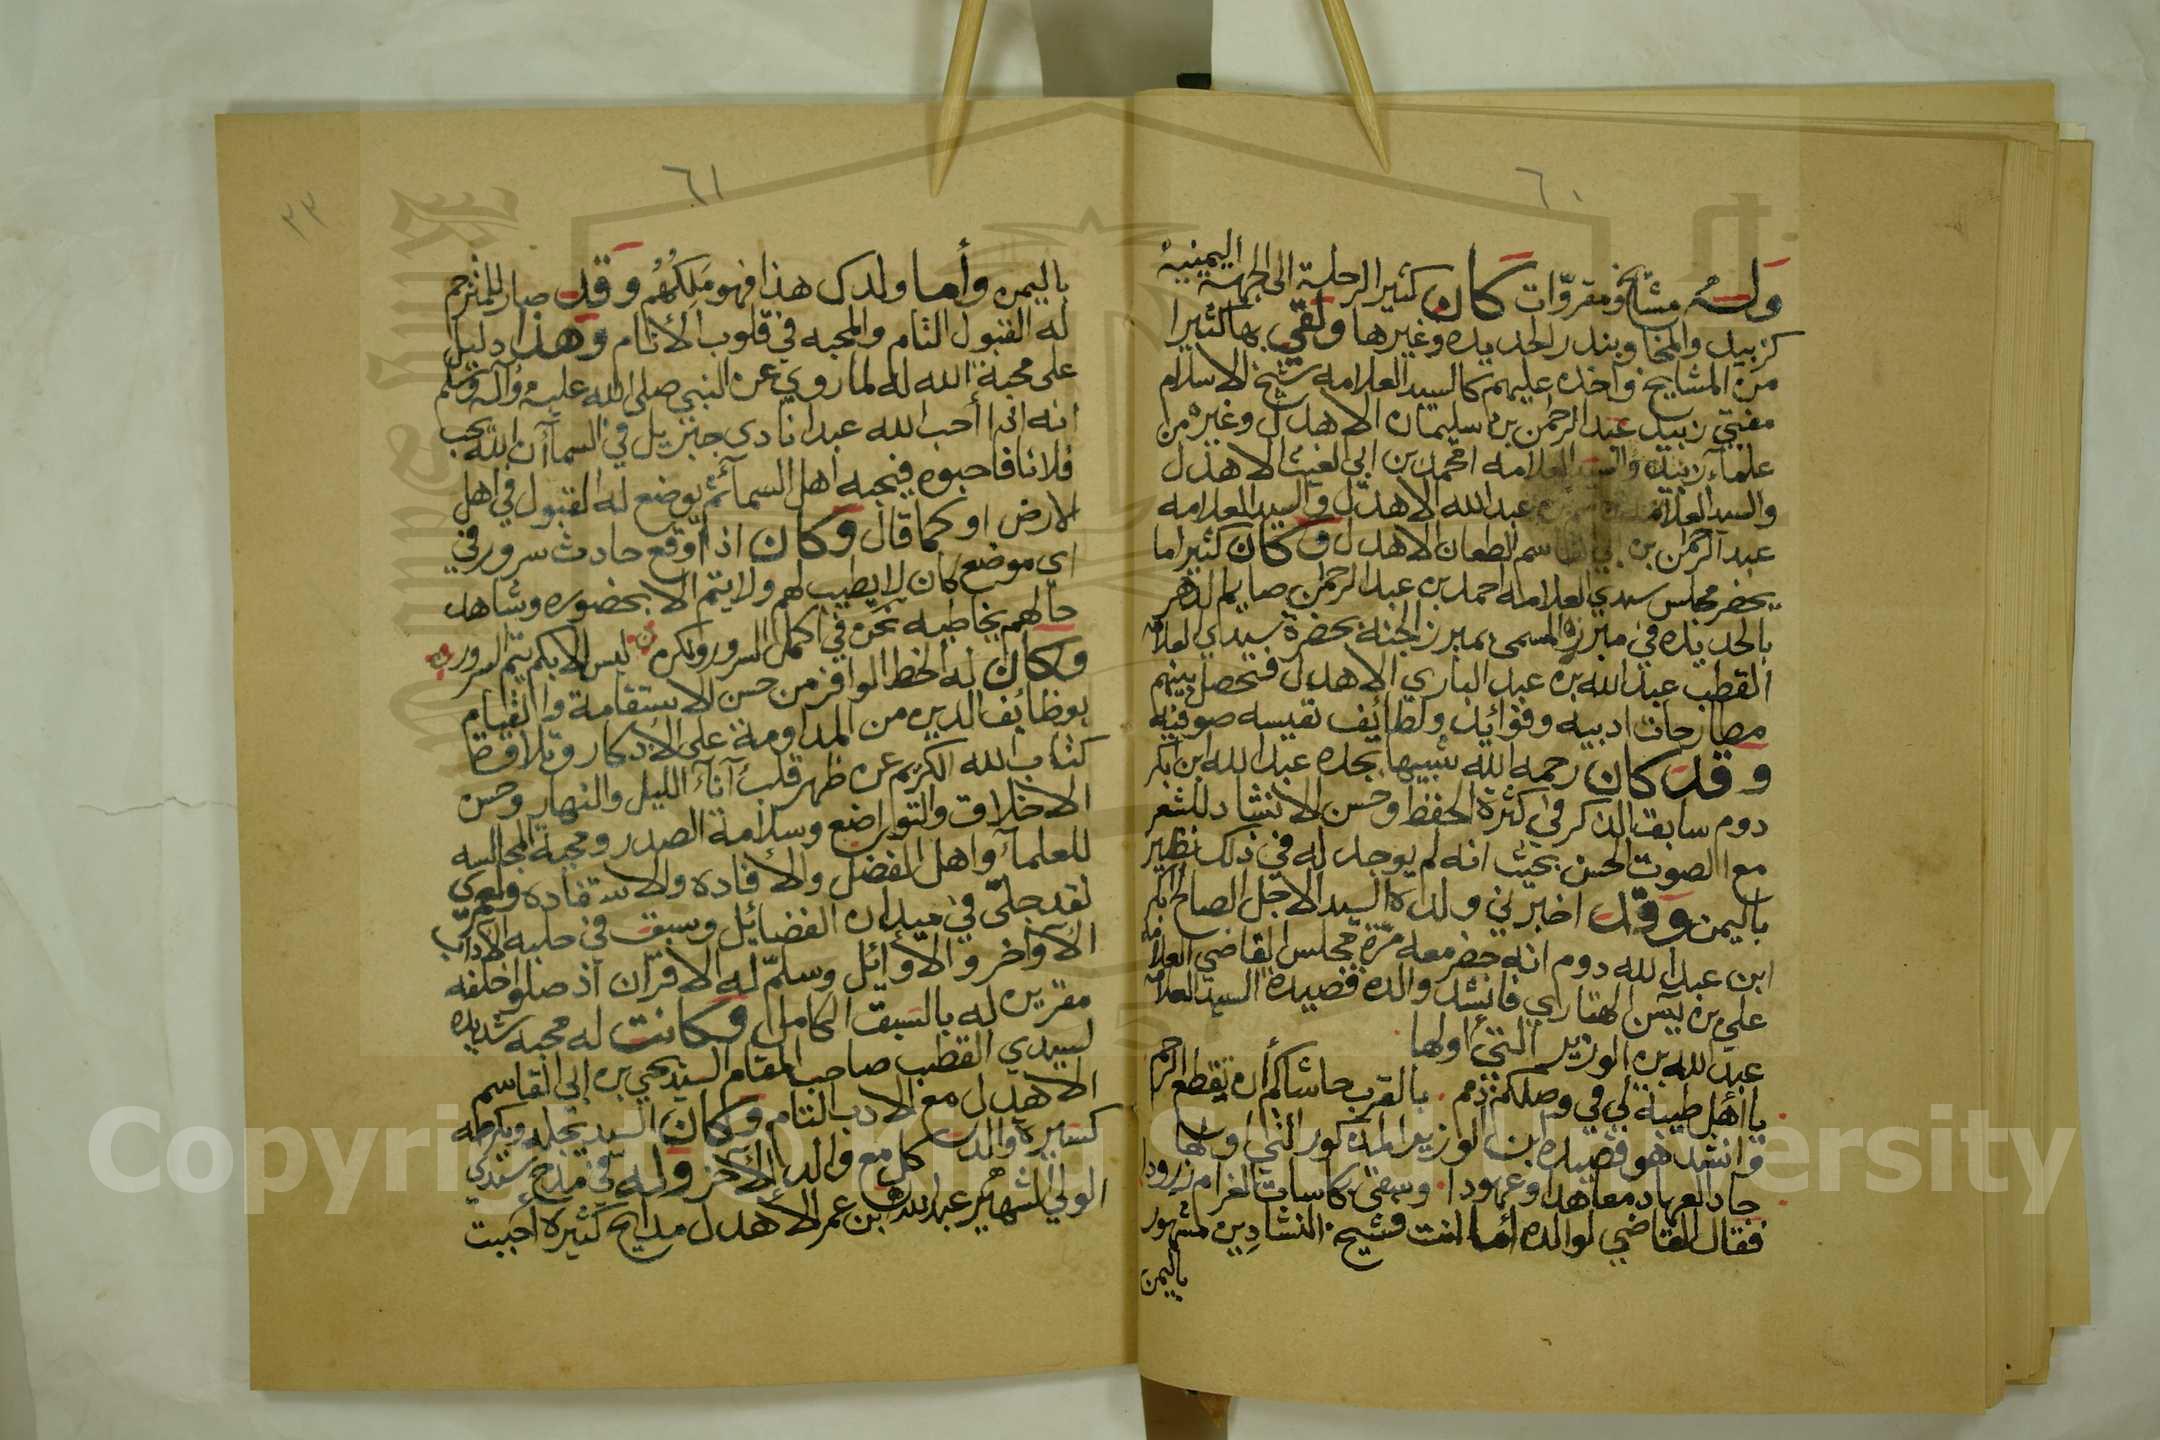 ٦٠
وله مشايخ ومقروّات كان كثير الرحلة الى الجهة اليمنية
كزبيد والمخا وبندر الحديده وغيرها ولقي بها كثيرا
من المشايخ وأخذه عليهم كالسيد العلامه شيخ الاسلام
مفتي زبيد عبد الرحمن بن سليمان الاهدل وغيره من
علماء زبيد والسيد العلامه محمد بن ابي الغيث الاهدل
والسيد العلامه عبد الله الاهدل والسيد العلامه
عبد الرحمن بن ابي القاسم الطعان الاهدل وكان كثيرا ما
يحضر مجلس سيدي العلامه احمد بن عبد الرحمن صايم الدهر
بالحديده في مبرزه المسمى بمبرز الجنة بحضرة سيدي العلامه
القطب عبد الله بن عبد الباري الاهدل فتحصل بينهم
مطارحات ادبيه وفوائد ولطائف نفيسه صوفيه
وقد كان رحمه الله شبيها بجده عبد الله ابن ابكر
دوم سابق الذكر في كثرة الحفظ وحسن الانشاد للشعر
مع الصوت الحسن بحيث انه لم يوجد له في ذلك نظير
باليمن وقد اخبرني ولده السيد الاجل الصالح ابكر
ابن عبد الله دوم انه حضر معه مرّة مجلس القاضي العلامه
علي بن يٓسن الهتاري فانشد والده قصيدة السيد العلامه
عبد الله بن الوزير التي أولها
يا أهل طيبة لي في وصلكم ذمم بالقرب حاشاكم أن يقطع الرحم
وانشد هو قصيدة بن الوزير المذكور التي اولها
جاد العهاد معاهدا وعهودا وسقى بكاسات الغرام زرودا
فقال القاضي لوالده أما انت فشيخ النشادين لمشهور
باليمن
٦١
٣٣
باليمن وأما ولدك هذا فهو مَلِكُهُم وقد صار للمترجم
له القبول التام والمحبه في قلوب الأنام وهذا دليل
على محبة الله له لما روي عن النبي صلى الله عليه وآله وسلم
انه اذا أحب الله عبدا نادى جبريل في السمآ أن الله يحب
فلانا فاحبوه فيحبه اهل السمآ ثم يوضع له القبول في اهل
الارض او كما قال وكان اذا وقع حادث سرور في
اي موضع كان لا يطيب لهم ولا يتم الا بحضوره وشاهد
حالهم يخاطبه نحن في اكمل السرور ولكن ليس الا بكم يتم السرور
وكان له الحظ الوافر من حسن الاستقامة والقيام
بوظائف الدين من المداومة على الاذكار وتلاوة
كتاب الله الكريم عن ظهر قلب آناء الليل والنهار وحسن
الاخلاق والتواضع وسلامة الصدر ومحبة المجالسه
للعلمآ واهل الفضل والأفاده والاستفاده ولعمري
لقد جلّى في ميدان الفضائل وسبق في حلبه الآداب
الأواخر والأوائل وسلّم له الاقران اذ صلوا خلفه
مقرين له بالسبق الكامل وكانت له محبه شديده
لسيدي القطب صاحب المقام السيد يحيى بن ابي القاسم
الاهدل مع الادب التام وكان السيد يجله ويكرمه
كسيرة والد كل مع والد الآخر وله في مدح سيدي
الولي الشهير عبد الله بن عمر الأهدل مدايح كثيرة أحببت